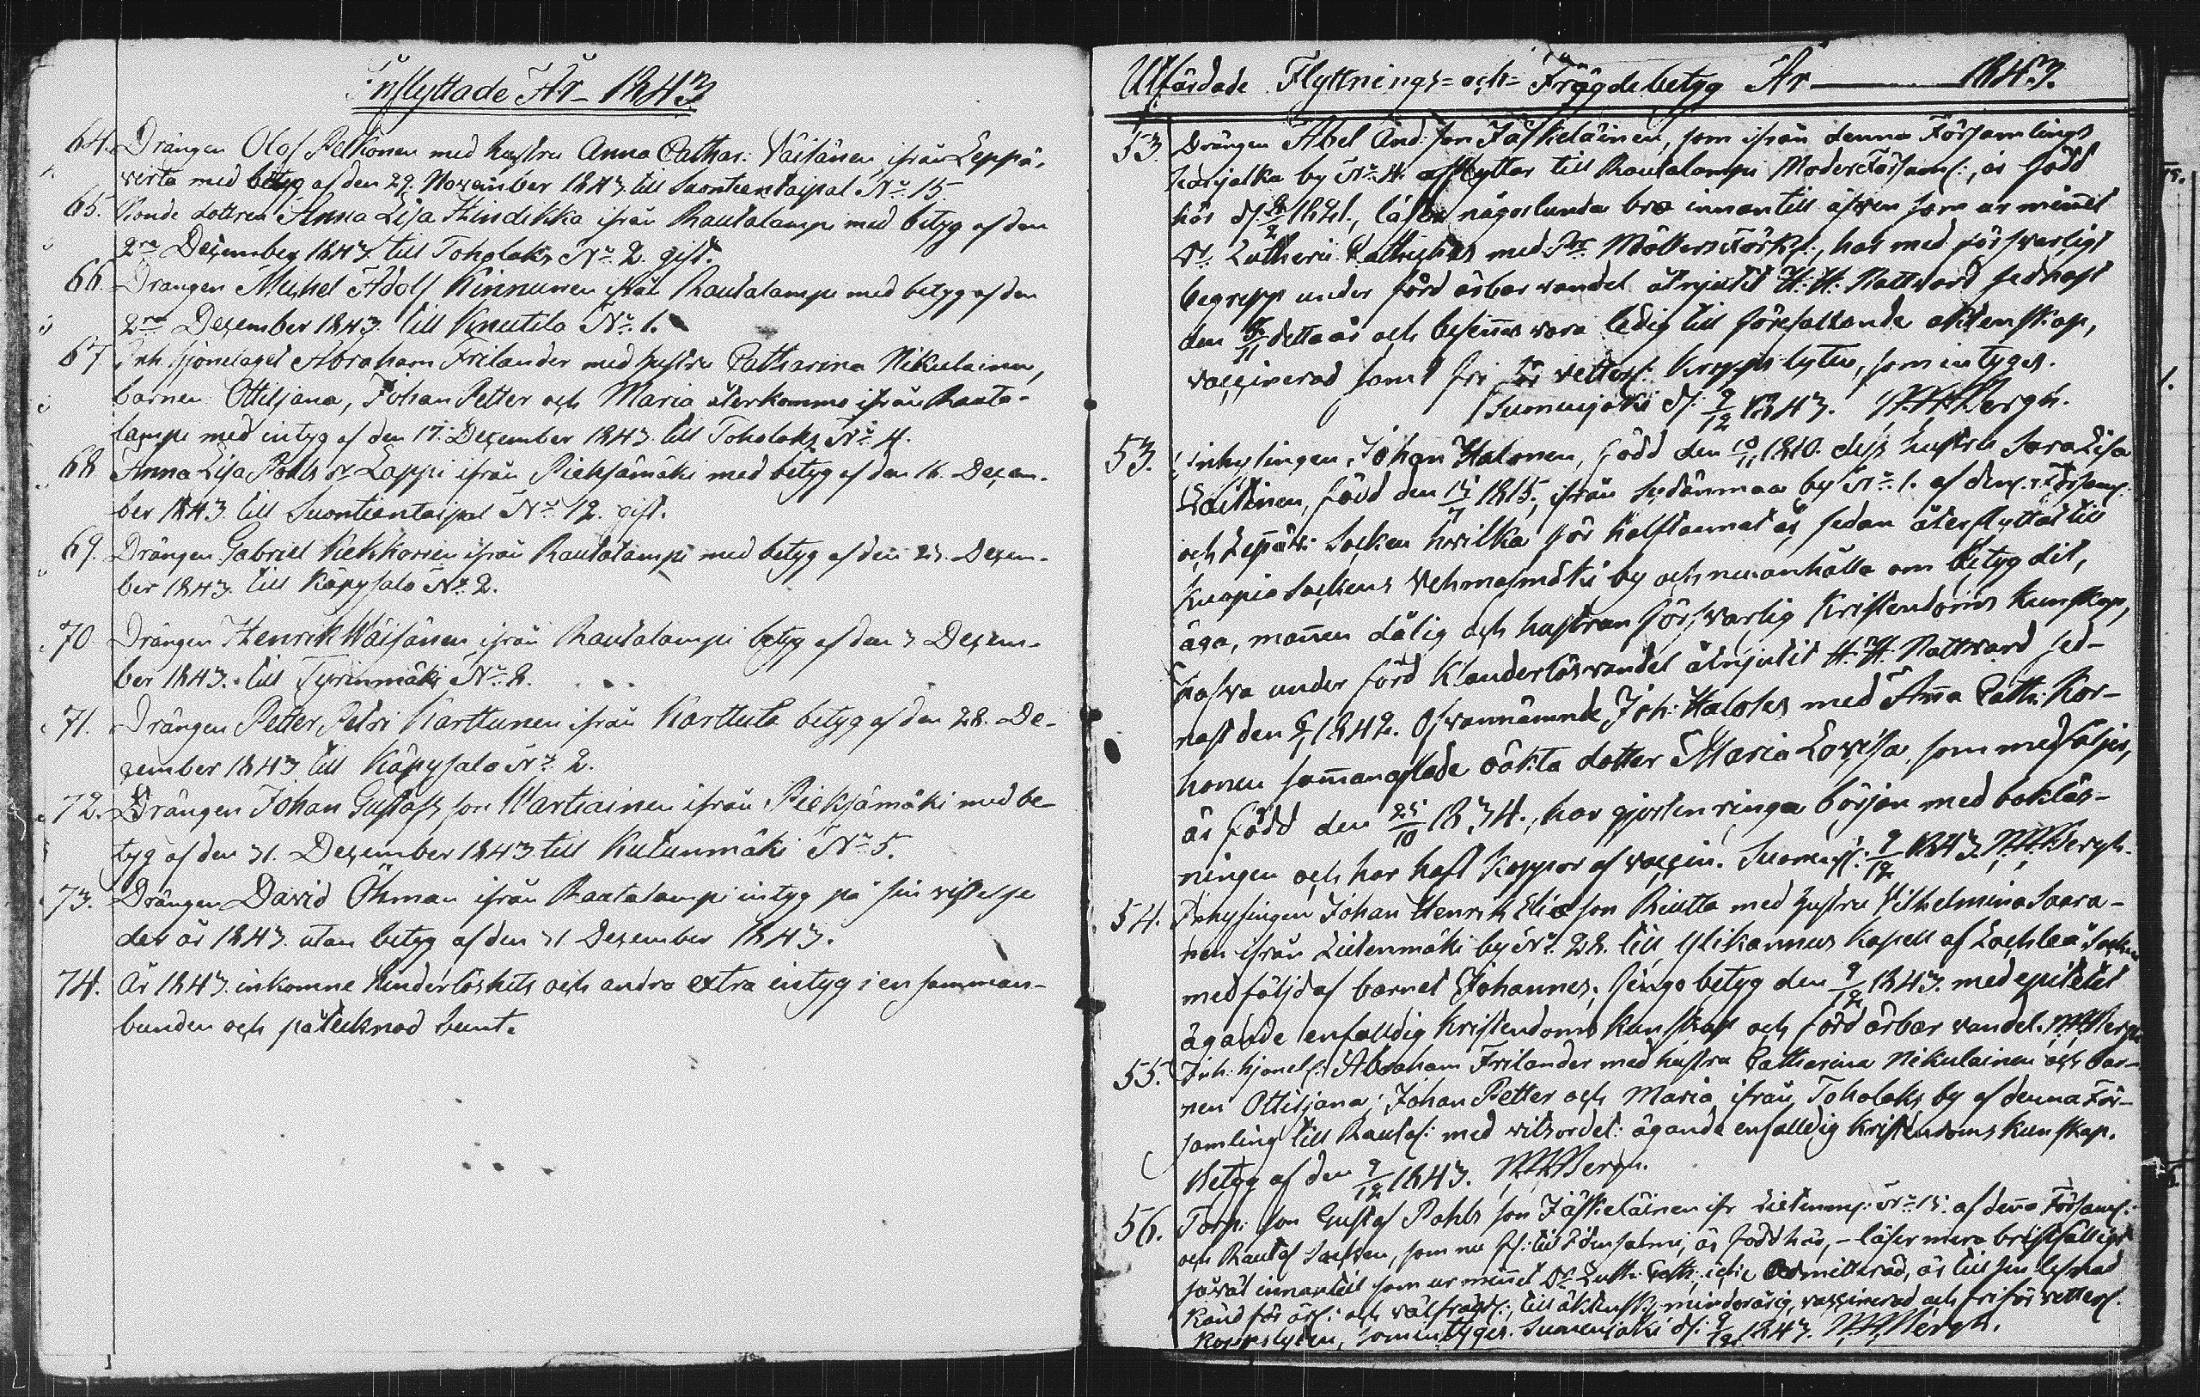 Inflyttade År 1843
64. Drängen Olof Pelkonen med hustru Anna Cathar: Väisänen ifrån Leppä-
virta med betyg af den 29. November 1843 till Suontientaipal No 15
65. Bonde dottren Anna Lisa Hindikka ifrån Rautalampi med betyg af den
2ra December 1843 till Toholaks No 2. gift.
66. Drängen Michel Adolf Kinnunen ifrån Rautalampi med betyg af den
2ra December 1843 till Knuutila No 1.
67. Inh. hjonelaget Abraham Frilander med hustru Catharina Nikulainen,
barnen Ottiljana, Johan Petter och Maria återkomne ifrån Rauta-
lampi med intyg af den 17. December 1843 till Toholaks No 4.
68 Anna Lisa Pohls dr Lappi ifrån Pieksämäki med betyg af den 16. Decem-
ber 1843 till Suontientaipal No 12. gift.
69. Drängen Gabriel Kekkonen ifrån Rautalampi med betyg af den 23. Decem-
ber 1843 till Käpysalo No 2.
70 Drängen Henrik Wäisänen ifrån Rautalampi betyg af den 3 Decem-
ber 1843. till Tyrinmäki No 8.
71. Drängen Petter Petri Karttunen ifrån Karttula betyg af den 28. De-
cember 1843 till Käpysalo No 2.
72. Drängen Johan Gustafs son Wartiainen ifrån Pieksämäki med be-
tyg af den 31. December 1843 till Kutunmäki No 5.
73. Drängen David Öhman ifrån Rautalampi intyg på sin vistelse
der år 1843. utan betyg af den 31 December 1843.
74. År 1843 inkomne hinderlöshets och andra extra intyg i en samman-
bunden och påtecknad bunt.
Utfärdade Flyttnings- och Frägdebetyg År 1843.
53. Drängen Abel And: son Jäskeläinen, som ifrån denna Församlings
by No 4. afflyttar till Rautalampi ModerFörsaml:, är född
här d: 1821., läser någorlunda bra innantill äfwen som ur minnet
Dr Lutherii Cathiches med Förkl:, har med försvarligt
begrepp under förd ärbar vandel åtnjutit H: H: Nattvard sednast
den detta år och befinnes vara ledig till förefallande äktenskap,
vaccinerad samt fri för kropps lyten, som intygas.
Suonenjoki d: 9/12 1843. Bergh.
53. Inhysingen Johan Halonen, född den 1810. dess hustru Sara Lisa
Laitinen, född den 15/7 1815, ifrån Sydänmaa by No 1. af denna Församl:
och Socken hvilka för halftannat år sedan återflyttat till
Kuopio Sockens Vehmasmäki by och nu anhålla om betyg dit,
äga, mannen dålig och hustrun försvarlig Kristendoms kunskap,
hafva under förd klanderlös vandel åtnjutit H. H. Nattvard sed-
nast den 1842. Ofvannämnde Joh: Halonens med Anna Cath: Kor-
honen sammanaflade oäkta dotter Maria Lovisa, som medföljer,
är född den 25/10 1834., har gjort en ringa början med bokläs-
ningen och har haft koppor af vaccin. Suonenj: 9/12 1843. Bergh.
54. Inhysingen Johan Henrik Elie son Riutta med hustru Vilhelmina Saara-
nen ifrån Lietenmäki by No 28. till Ylikannus Kapell af Lochteå Socken
medföljd af barnet Johannes, fingo betyg den 9/12 1843. med epitetet
ägande enfaldig Kristendoms kunskap och förd ärbar vandel. Bergh
55. Inh. hjonel: Abraham Frilander med hustru Catharina Nikulainen och bar-
nen Ottiljana, Johan Petter och Maria ifrån Toholaks by af denna För-
samling till Rautal: med vitsordet: ägande enfaldig Kristendoms kunskap.
Betyg af den 9/12 1843. Bergh.
56. Torp: son Gustaf Pohls son Jäskeläinen ifr. No 15. af denna Församl:
och Rautal Socken, som nu fl: till Idensalmi, är född här, läser mera bristfälligt
såväl innantill som ur minnet Dr Luth: Cath: icke admitterad, är till sin lefnad
känd för och välfrägd:, till äktensk: minderårig, vaccinerad och fri för
kroppslyten, som intygas. Suonenjoki d: 9/12 1843. Bergh.